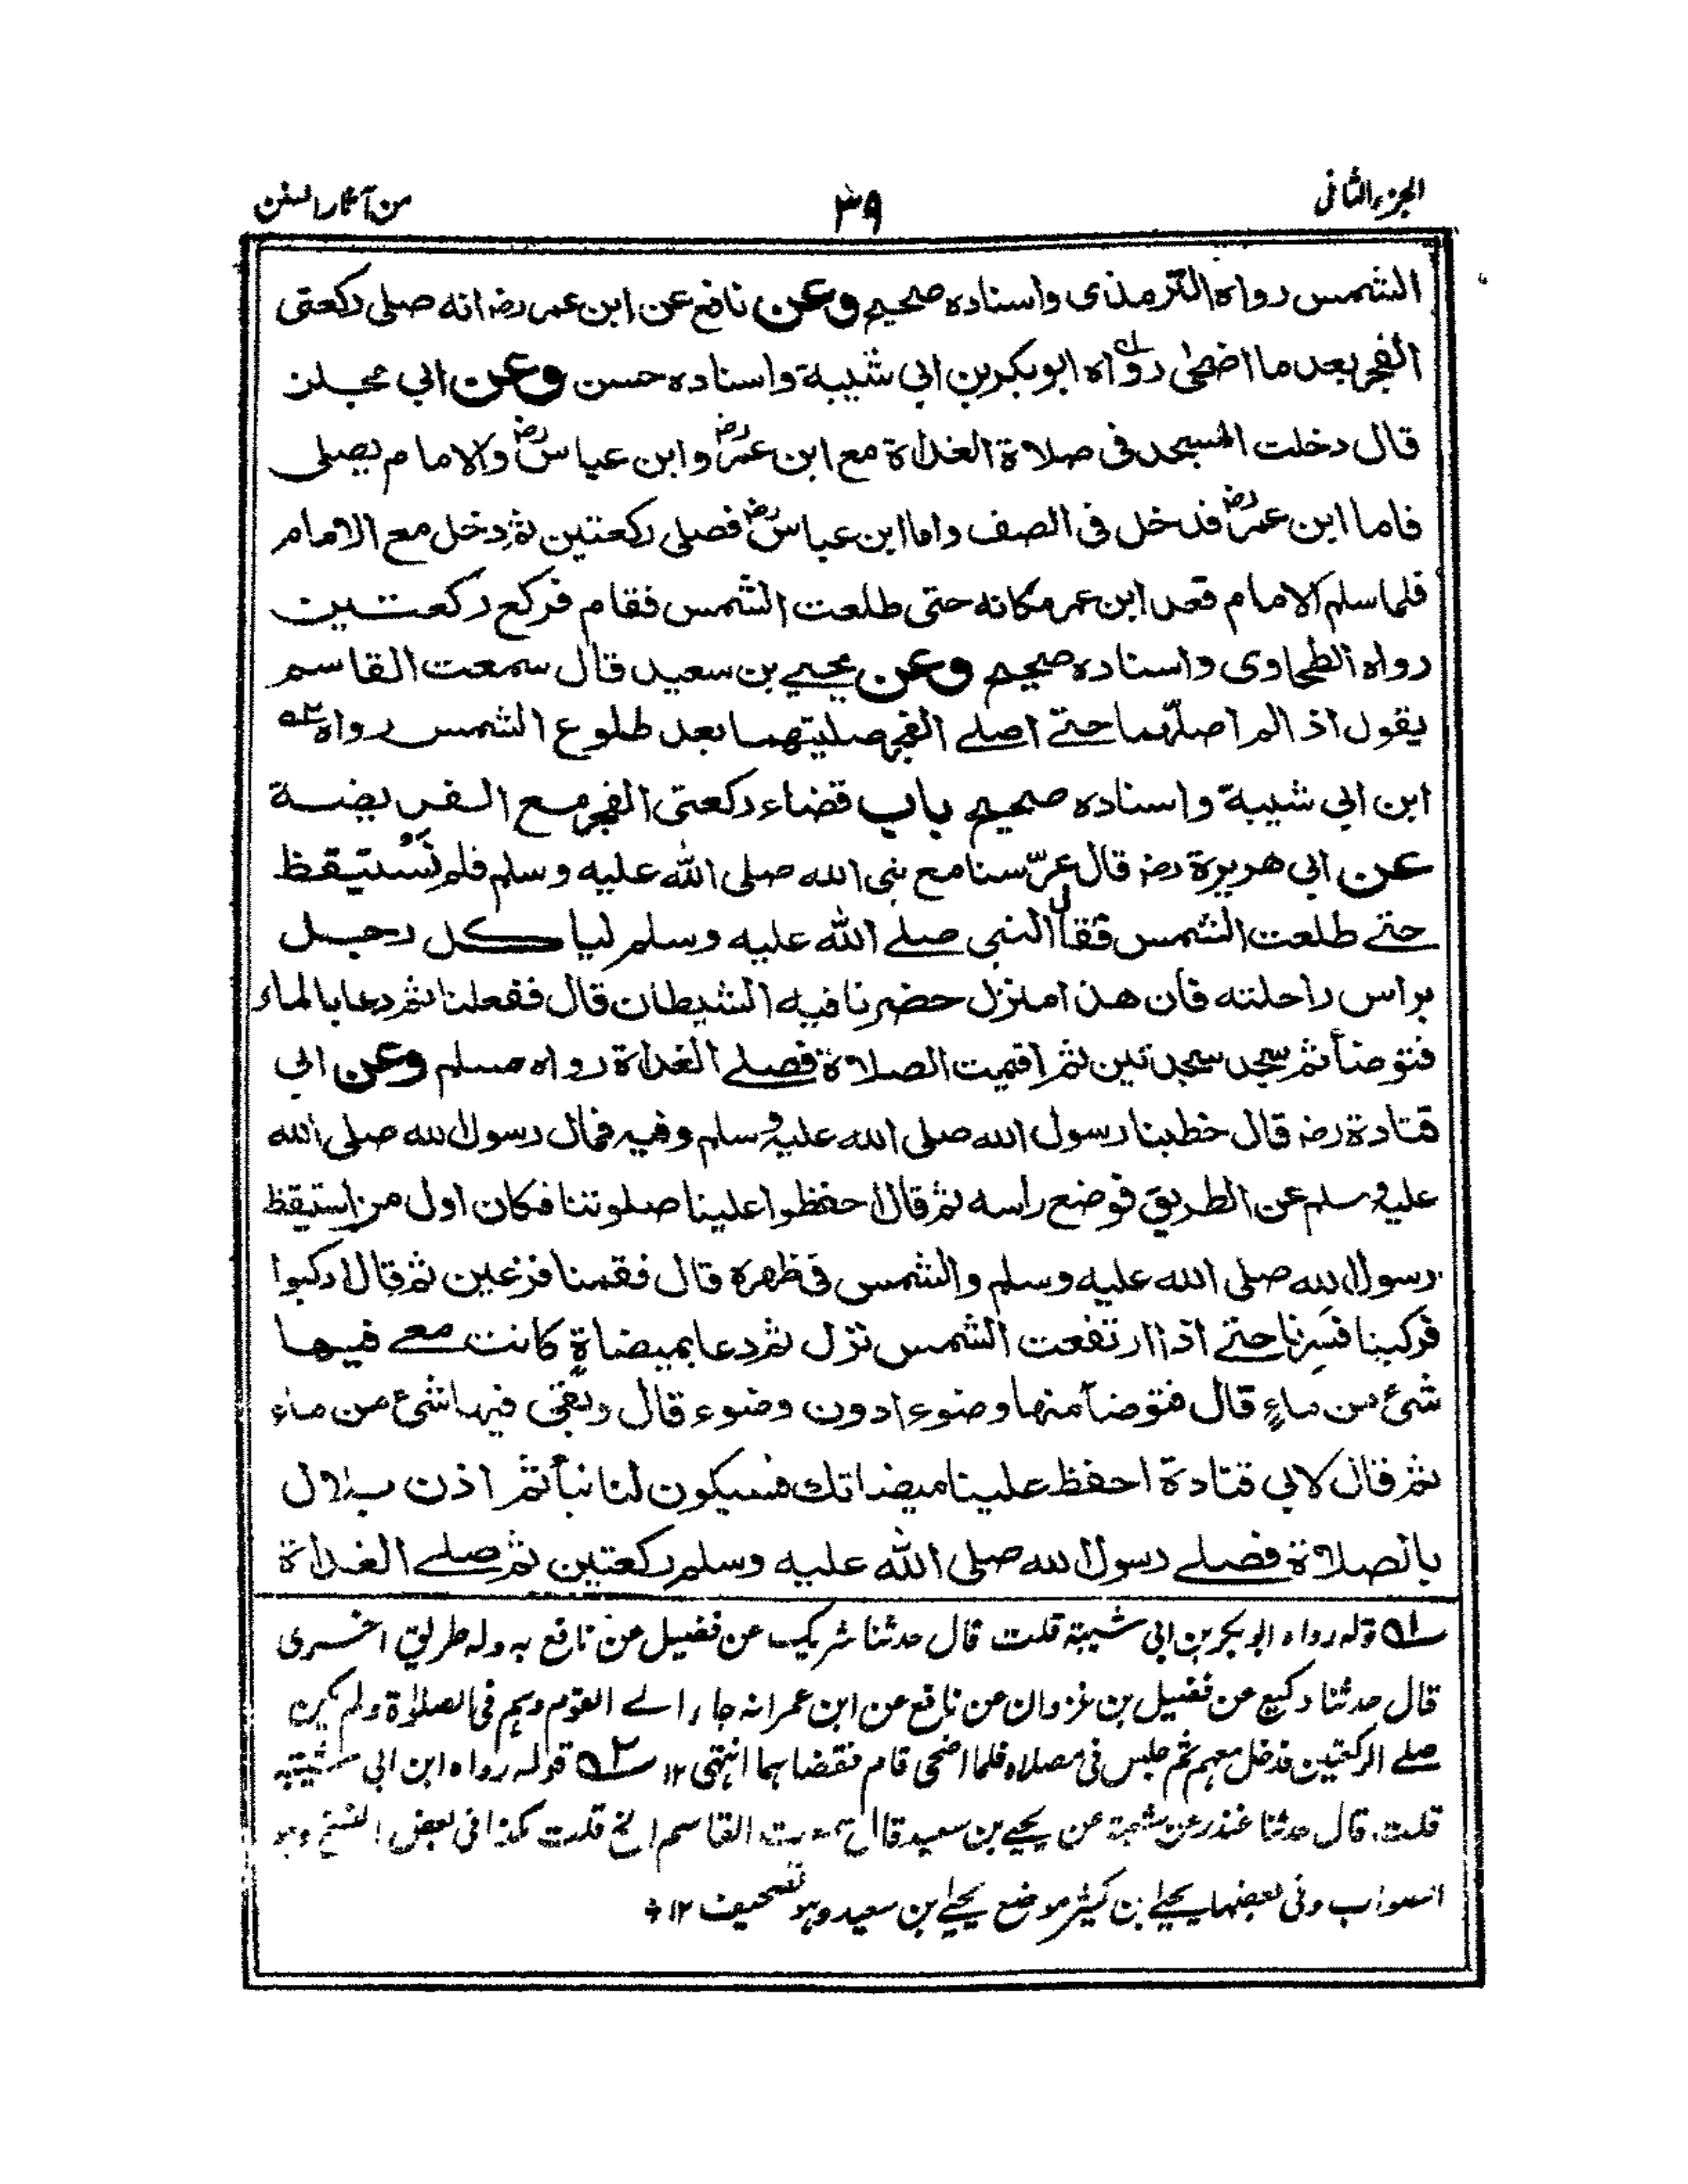 الجزء الثانی
٣٩
من آثار السنن
الشمس رواه الترمذی واسناده صحیح وعن نافع عن ابن عمر رضہ انه صلی رکعتی
الفجر بعد ما اضحٰی رواه ابوبکر بن ابی شیبة واسناده حسن وعن ابی مجلز
قال دخلت المسجد فی صلاة الغداة مع ابن عمر رضہ وابن عباس رضہ والامام یصلی
فاما ابن عمر رضہ فدخل فی الصف واما ابن عباس رضہ فصلی رکعتین ثم دخل مع الامام
فلما سلم الامام قعد ابن عمر مکانه حتی طلعت الشمس فقام فرکع رکعتین
رواه الطحاوی واسناده صحیح وعن یحیے بن سعید قال سمعت القاسم
یقول اذا لم اصلّهما حتے اصلے الفجر صلیتهما بعد طلوع الشمس رواه ٢ـه
ابن ابی شیبة واسناده صحیح باب قضاء رکعتی الفجر مع الفریضة
عن ابی هریرة رضہ قال عرّسنا مع نبی الله صلی الله علیه وسلم فلم نَسْتیقظ
حتے طلعت الشمس فقال النبی صلے الله علیه وسلم لیاخذ کل رجل
براس راحلته فان هذا منزل حضرنا فیه الشیطان قال ففعلنا ثم دعا بالماء
فتوضأ ثم سجد سجدتین ثم اقیمت الصلاة فصلے الغداة رواه مسلم وعن ابی
قتادة رضہ قال خطبنا رسول الله صلی الله علیه وسلم وفیه فمال رسول الله صلی الله
علیه وسلم عن الطریق فوضع راسه ثم قال احفظوا علینا صلوتنا فکان اول من استیقظ
رسول الله صلی الله علیه وسلم والشمس فی ظهره قال فقمنا فزعین ثم قال ارکبوا
فرکبنا فسِرنا حتے اذا ارتفعت الشمس نزل ثم دعا بمیضاةٍ کانت معے فیها
شئ من ماءٍ قال فتوضأ منها وضوءا دون وضوء قال وبقی فیها شئ من ماء
ثم قال لابی قتادة احفظ علینا میضاتك فسیکون لنا نبأ ثم اذن بلال
بالصلاة فصلے رسول الله صلی الله علیه وسلم رکعتین ثم صلے الغداة
١ـه قوله رواه ابوبکر بن ابی شیبة قلت قال حدثنا شریک عن فضیل عن نافع به وله طریق اخری
قال حدثنا وکیع عن فضیل بن غزوان عن نافع عن ابن عمر انه جاء الے القوم وہم فی الصلوٰة ولم یکن
صلے الرکعتین فدخل معہم ثم جلس فی مصلاه فلما اضحی قام فقضاہما انتہی ١٢ ٢ـه قوله رواه ابن ابی شیبة
قلت قال حدثنا غندر عن شعبة عن یحیے بن سعید قال سمعت القاسم الخ قلت ہکذا فی بعض النسخ وہو
الصواب وفی بعضہا یحیٰے ابن کثیر موضع یحیٰے بن سعید وہو تصحیف ١٢